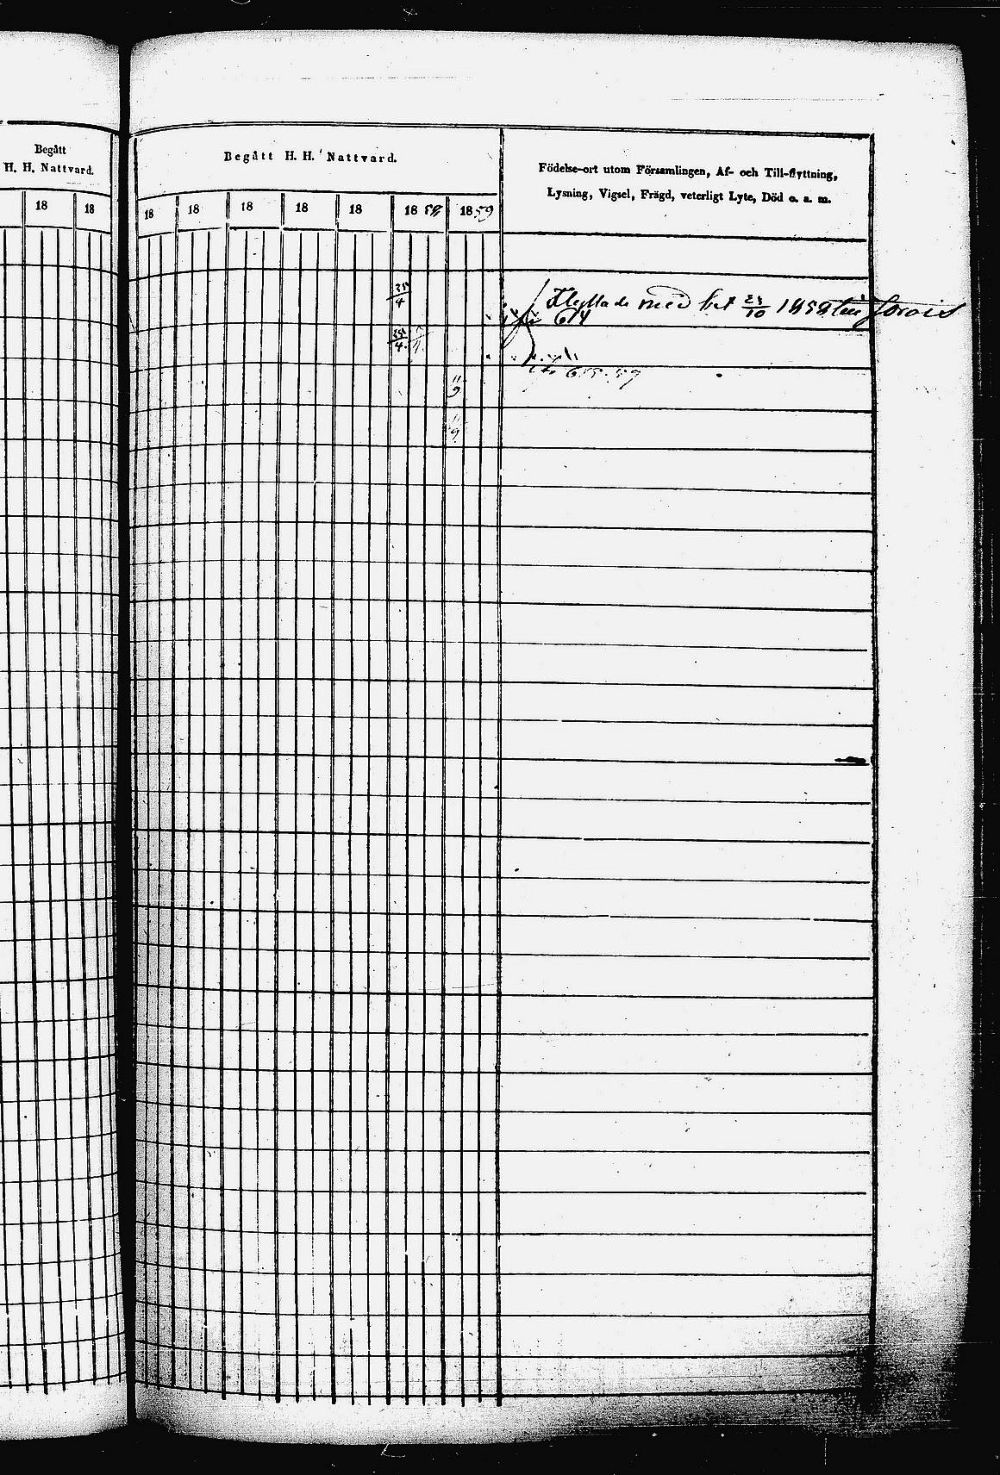 Begått
H. H. Nattvard.
18 18
Begått H. H. Nattvard.
18 18 18 18 18 18 58 18 59
Födelse-ort utom Församlingen, Af- och Till-flyttning,
Lysning, Vigsel, Frägd, veterligt Lyte, Död o. a. m.
25/4
Flyttade med bet 23/10 1858 till
614
25/4